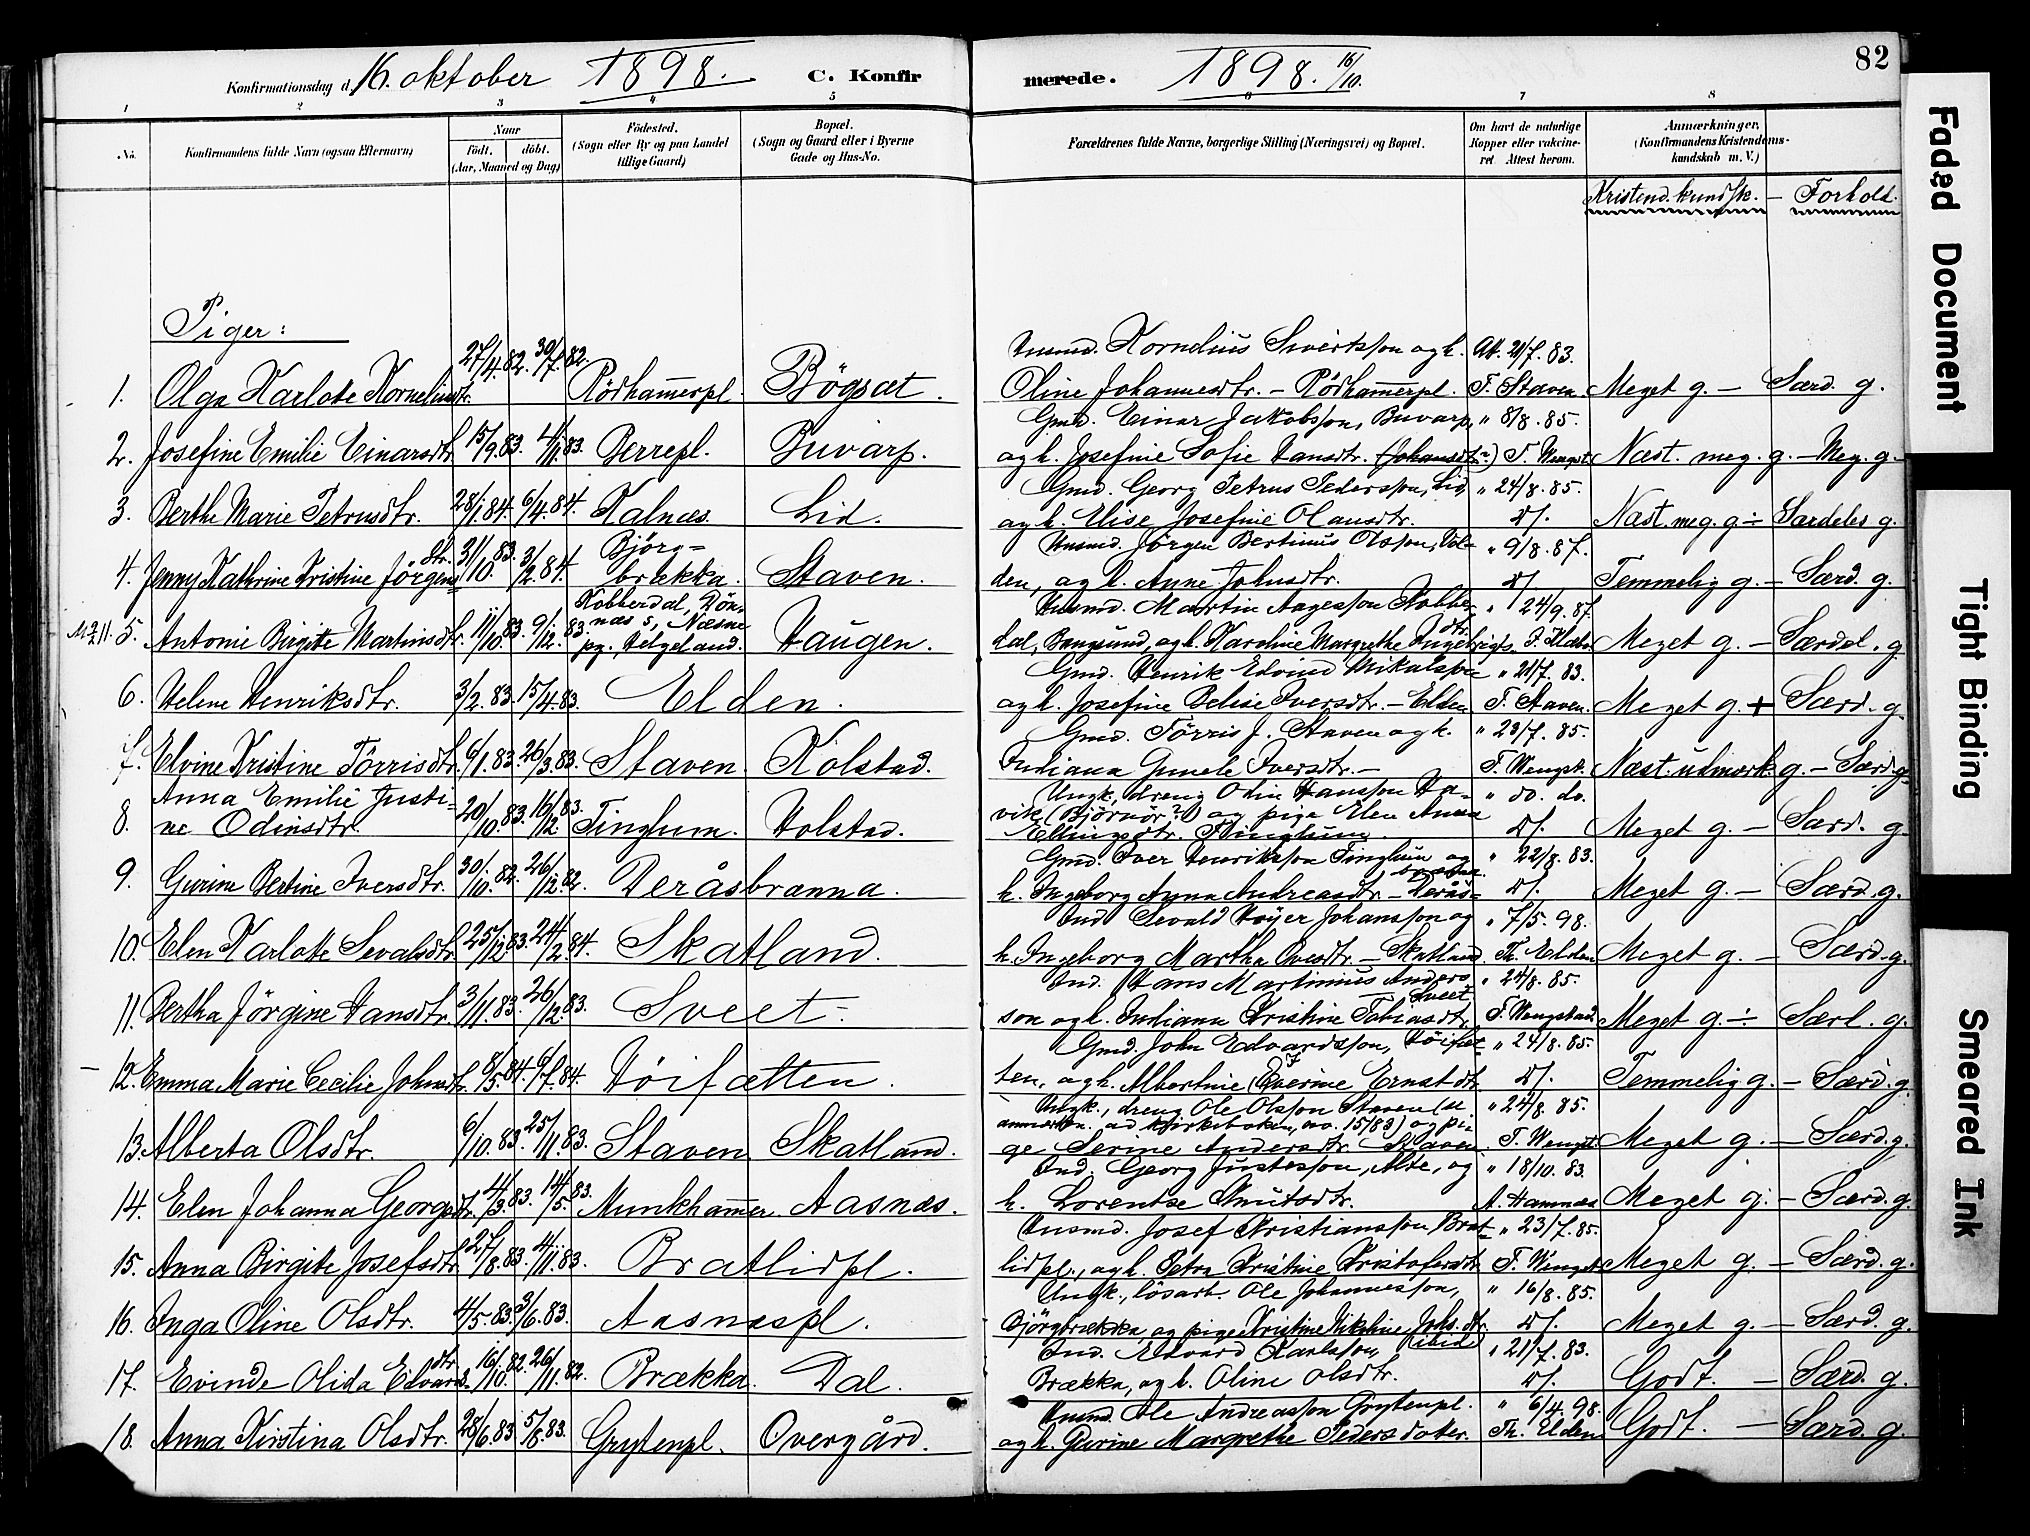 Konfirmationsdag d. 16. oktober 1898. C. Konfir
merede. 1898. 16/10. 82
1 2 3 4 5 6 7 8
No. Konfirmandens fulde Navn (ogsaa Efternavn) Naar Födt. döbt. (Aar, Maaned og Dag) Födested. (Sogn eller By og paa Landet tillige Gaard) Bopæl. (Sogn og Gaard eller i Byerne Gade og Hus-No.
Forældrenes fulde Navne, borgerlige Stilling (Næringsvei) og Bopæl. Om havt de naturlige Kopper eller vakcineret. Attest herom. Anmærkninger, (Konfirmandens Kristendomskundskab m. V.)
Kristend. kundsk. – Forhold.
Piger:
1. Olga Karlote Korneliusdtr. 27/4.82. 30/7.82. Rödhammerpl. Bögsæt.
Husmd. Kornelius Siverksson og h. Att. 21/7.83.
Oline Johannesdtr. – Rödhammerpl. T. Staven. Meget g. – Særd. g.
2. Josefine Emilie Einarsdtr. 15/9.83. 4/11.83. Berrepl. Buvarp.
Gmd. Einar Jakobsson, Buvarp, " 8/8.85.
og h. Josefine Sofie Hansdtr. (Johansdtr.?) T. Wengst. Næst. meg. g. – Meg. g.
3. Berthe Marie Petrusdtr. 28/1.84. 6/4.84. Kalnæs. Lid.
Gmd. Georg Petrus Pedersson, Lid, " 24/8.85.
og h. Elise Josefine Olausdtr. D/. Næst. meg. g. ÷ Særdeles g.
4. Jenny Kathrine Kristine Jörgensdtr. 31/10.83. 3/2.84. Björgbrækka. Staven.
Husmd. Jörgen Bertinus Olsson, " 9/8.87.
den, og h. Anne Johnsdtr. D/ Temmelig g. – Særd. g.
5. Antonie Birgitte Martinsdtr. 11/10.83. 9/12.83. Kobberdal, Dönnæs s, Næsne pg. Helgeland. Haugen.
Husmd. Martin Aagesson Kobber " 24/9.87.
dal, og h. Karoline Margrethe Ingebrigtsdtr. Meget g. – Særdel. g.
6. Helene Henriksdtr. 3/2.83. 15/4.83. Elden.
Gmd. Henrik Edvind Mikalsson " 21/7.83.
og h. Josefine Iversdtr. – Elden T. Staven. Meget g. + Særd. g.
7. Elvine Kristine Törrisdtr. 6/1.83. 26/3.83. Staven. Kolstad.
Gmd. Törris J. Staven og h. " 23/7.85.
Indiana Gunele Iversdtr. – T. Wengst. Næst. udmærk. g. – Særd. g.
8. Anna Emilie Justine Odinsdtr. 20/10.83. 16/12.83. Tinglum. Holstad.
Ungk. dreng Odin Hansson Ha- " do. do.
vik (Björnör?) og pige Elen Anna
Ellingsdtr. Tinglum. D/. Meget g. – Særd. g.
9. Gurine Bertine Iversdtr. 30/10.82. 26/12.82. Deråsbranna.
Gmd. Iver Henriksson Tinglum og " 22/8.83.
h. Ingeborg Anna Andreasdtr. – Derås- D/. Meget g. – Særd. g.
10. Elen Karlotte Sevalsdtr. 25/12.83. 24/2.84. Skatland.
Ind. Sevald Höyer Johansson og " 7/5.98.
h. Ingeborg Martha Ovesdtr. – Skatland. Th. Elden Meget g. – Særd. g.
11. Bertha Jörgine Hansdtr. 3/11.83. 26/12.83. Sveet.
Ind. Hans Martinius Anders- " 24/8.85.
son og h. Indiana Kristine Tobiasdtr. Sveet T. Wengstad Meget g. ÷ Særd. g.
12. Emma Marie Cecilie Johnsdtr. 8/5.84. 6/7.84. Höifætten.
Gmd. John Edvardsson, Höifæt- " 24/8.85.
ten, og h. Albertine Severine Ernstdtr. D/. Temmelig g. – Særd. g.
13. Alberta Olsdtr. 6/10.83. 25/11.83. Staven. Skatland.
Ungk., dreng Ole Olsson Staven (se " 24/8.85.
anmærkn. ad kirkeboken, no. 15/83) og pi-
ge Serine Andersdtr. Staven T. Wengst. Meget g. – Særd. g.
14. Elen Johanna Georgsdtr. 4/3.83. 14/5.83. Munkhammer. Aasnæs.
Ind. Georg Justesson, Alte, og " 18/10.83.
h. Lorentse Knutsdtr. A. Hamnæs Meget g. – Særd. g.
15. Anna Birgite Josefsdtr. 27/8.83. 4/11.83. Bratlidpl.
Husmd. Josef Kristiansson Brat- " 23/7.85.
lidpl., og h. Petra Kristine Kristofersdtr. T. Wengst. Meget g. – Særd. g.
16. Inga Oline Olsdtr. 4/5.83. 3/6.83. Aasnæspl.
Ungk., lösarb. Ole Johannesson, " 16/8.85.
Björgbrækka og pige Kristine Nikoline Johs.dtr. (ibid) D/. Meget g. – Særd. g.
17. Evinde Olida Edvardsdtr. 16/10.82. 26/11.82. Brækka. Dal.
Ind. Edvard Karlsson, " 21/7.83.
Brækka, og h. Oline Olsdtr. D/. Godt. – Særd. g.
18. Anna Kirstina Olsdtr. 28/6.83. 5/8.83. Grytenpl. Overgård.
Husmd. Ole Andreasson Grytenpl. " 6/4.98.
og h. Gurine Margrethe Pedersdatter. Th. Elden Godt. – Særd. g.
Faded Document
Tight Binding
Smeared Ink